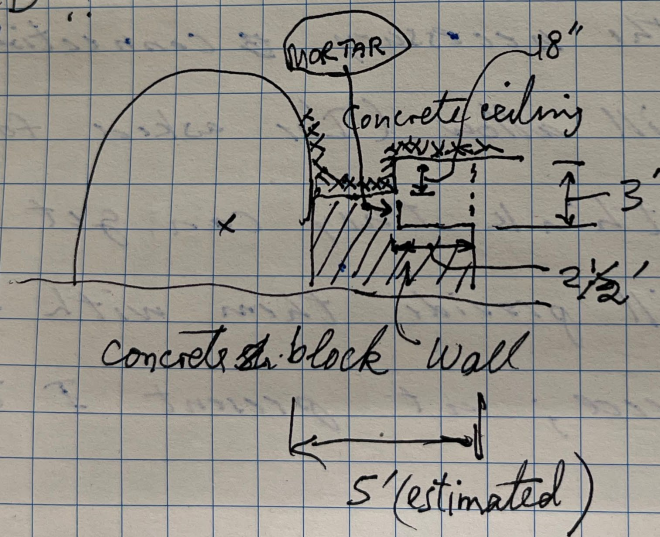 MORTAR
18"
Concrete ceiling
3'
x
2 1/2'
Concrete block Wall
5' (estimated)